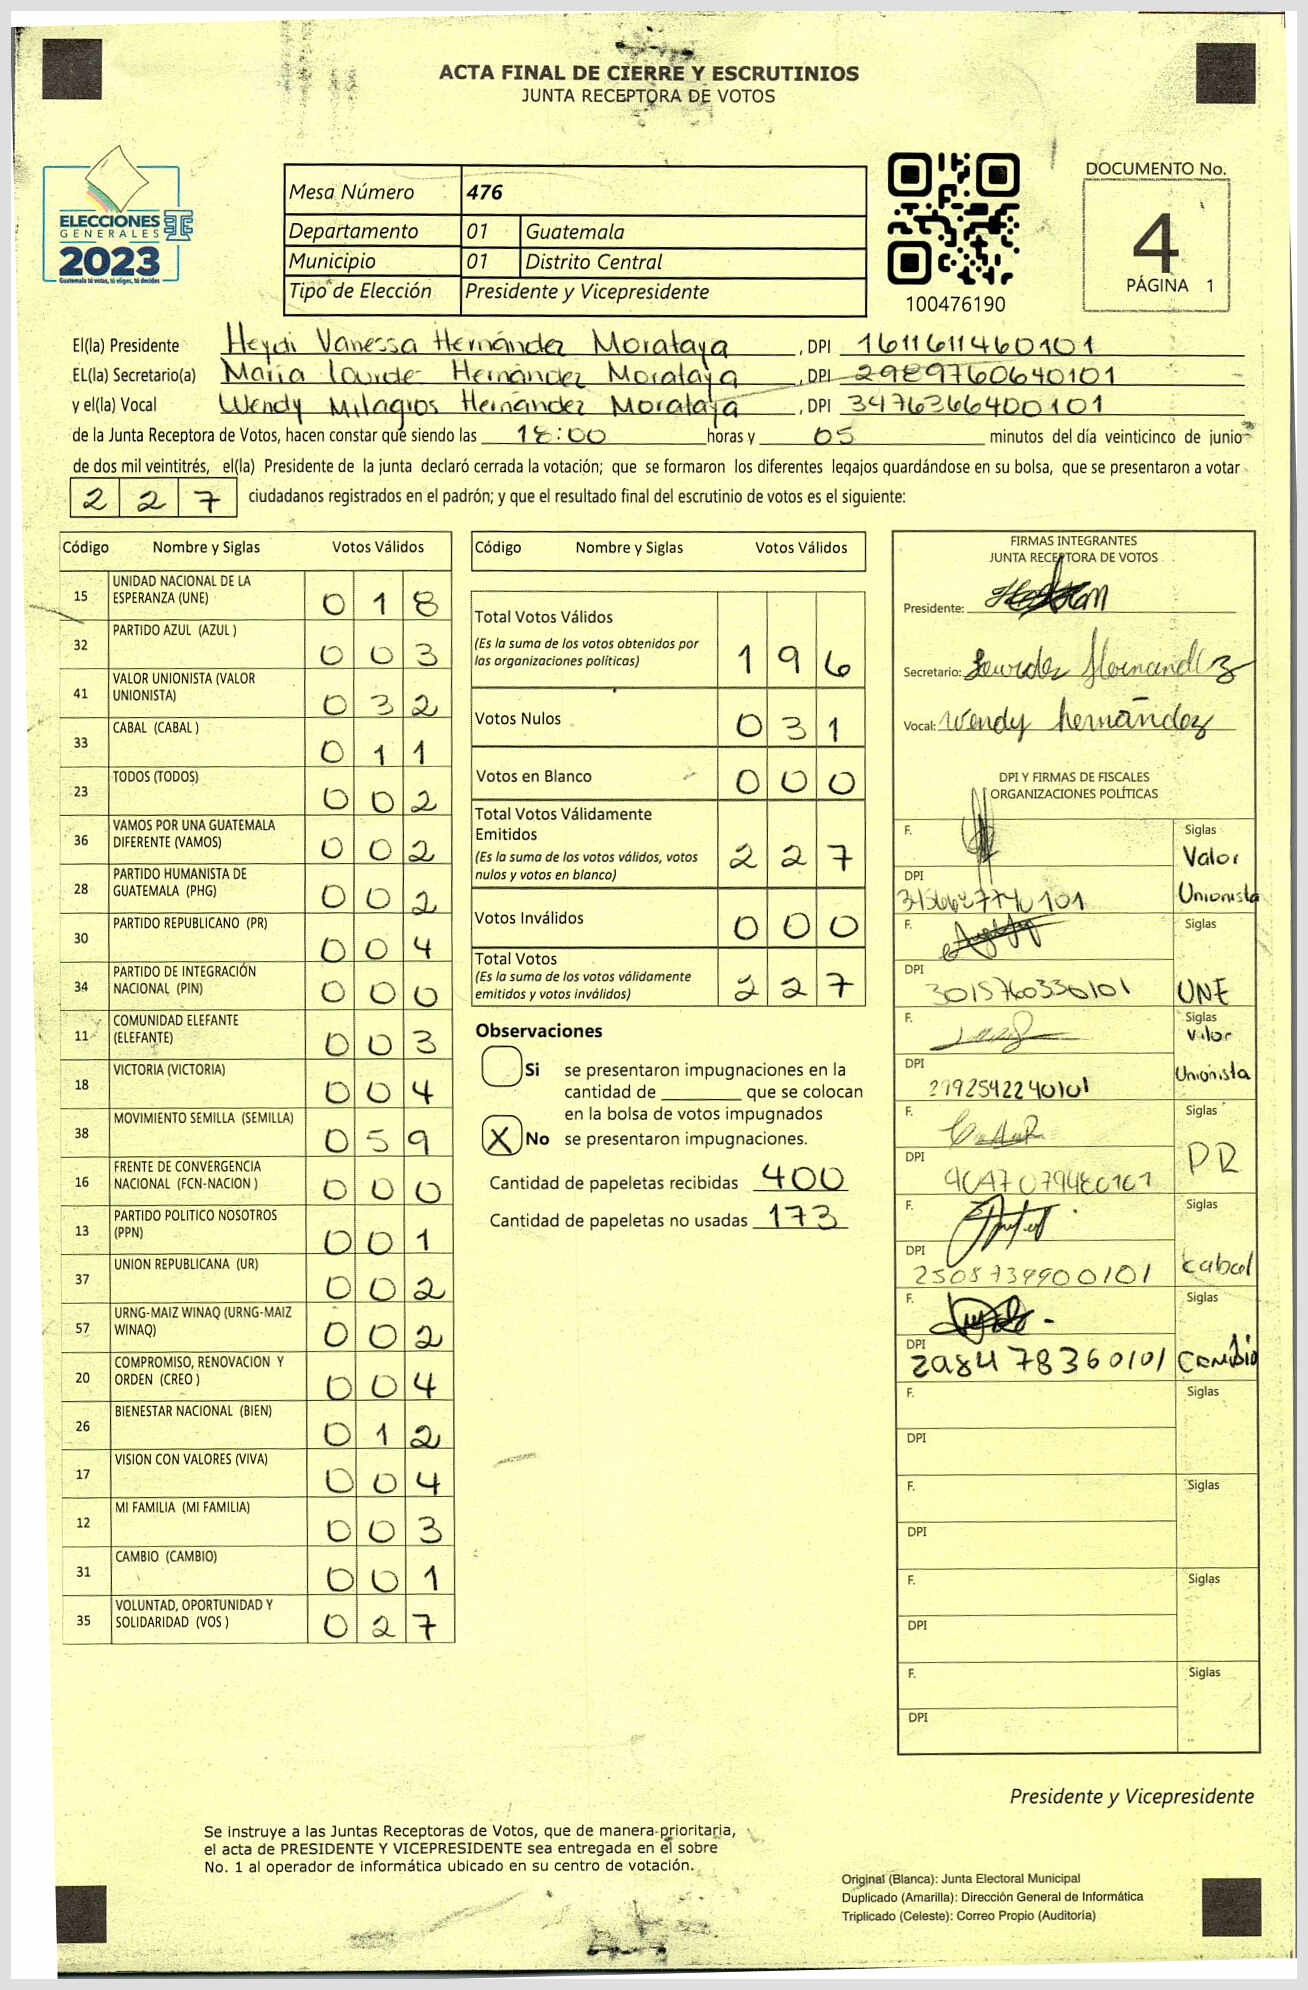 ACTA FINAL DE CIERRE Y ESCRUTINIOS
JUNTA RECEPTORA DE VOTOS
ELECCIONES
GENERALES
2023
Guatemala tú votas, tú eliges, tú decides
Mesa Número 476
Departamento 01 Guatemala
Municipio 01 Distrito Central
Tipo de Elección Presidente y Vicepresidente
100476190
DOCUMENTO No.
4
PÁGINA 1
El(la) Presidente Heydi Vanessa Hernández Morataya, DPI 1611611460101
EL(la) Secretario(a) María Lourde Hernández Morataya, DPI 2989760640101
y el(la) Vocal Wendy Milagros Hernández Morataya, DPI 3476366400101
de la Junta Receptora de Votos, hacen constar que siendo las 18:00 horas y 05 minutos del día veinticinco de junio
de dos mil veintitrés, el(la) Presidente de la junta declaró cerrada la votación; que se formaron los diferentes legajos quardándose en su bolsa, que se presentaron a votar
227 ciudadanos registrados en el padrón; y que el resultado final del escrutinio de votos es el siguiente:
Código Nombre y Siglas Votos Válidos
15 UNIDAD NACIONAL DE LA ESPERANZA (UNE) 018
32 PARTIDO AZUL (AZUL ) 003
41 VALOR UNIONISTA (VALOR UNIONISTA) 032
33 CABAL (CABAL ) 011
23 TODOS (TODOS) 002
36 VAMOS POR UNA GUATEMALA DIFERENTE (VAMOS) 002
28 PARTIDO HUMANISTA DE GUATEMALA (PHG) 002
30 PARTIDO REPUBLICANO (PR) 004
34 PARTIDO DE INTEGRACIÓN NACIONAL (PIN) 000
11 COMUNIDAD ELEFANTE (ELEFANTE) 003
18 VICTORIA (VICTORIA) 004
38 MOVIMIENTO SEMILLA (SEMILLA) 059
16 FRENTE DE CONVERGENCIA NACIONAL (FCN-NACION ) 000
13 PARTIDO POLITICO NOSOTROS (PPN) 001
37 UNION REPUBLICANA (UR) 002
57 URNG-MAIZ WINAQ (URNG-MAIZ WINAQ) 002
20 COMPROMISO, RENOVACION Y ORDEN (CREO ) 004
26 BIENESTAR NACIONAL (BIEN) 012
17 VISION CON VALORES (VIVA) 004
12 MI FAMILIA (MI FAMILIA) 003
31 CAMBIO (CAMBIO) 001
35 VOLUNTAD, OPORTUNIDAD Y SOLIDARIDAD (VOS ) 027
Código Nombre y Siglas Votos Válidos
Total Votos Válidos 196
(Es la suma de los votos obtenidos por
las organizaciones políticas)
Votos Nulos 031
Votos en Blanco 000
Total Votos Válidamente
Emitidos 227
(Es la suma de los votos válidos, votos
nulos y votos en blanco)
Votos Inválidos 000
Total Votos 227
(Es la suma de los votos válidamente
emitidos y votos inválidos)
Observaciones
Si se presentaron impugnaciones en la
cantidad de ________ que se colocan
en la bolsa de votos impugnados
X No se presentaron impugnaciones.
Cantidad de papeletas recibidas 400
Cantidad de papeletas no usadas 173
FIRMAS INTEGRANTES
JUNTA RECEPTORA DE VOTOS
Presidente:
Secretario: Lourdes Hernandez
Vocal: Wendy hernández
DPI Y FIRMAS DE FISCALES
ORGANIZACIONES POLÍTICAS
F. Siglas
Valor
DPI Unionista
F. Siglas
DPI 3015760330101 UNE
F. Siglas
Valor
DPI 2992542240101 Unionista
F. Siglas
DPI PR
F. Siglas
DPI 2508739900101 Cabal
F. Siglas
DPI 2984478360101 Cambio
F. Siglas
DPI
F. Siglas
DPI
F. Siglas
DPI
F. Siglas
DPI
Presidente y Vicepresidente
Se instruye a las Juntas Receptoras de Votos, que de manera prioritaria,
el acta de PRESIDENTE Y VICEPRESIDENTE sea entregada en el sobre
No. 1 al operador de informática ubicado en su centro de votación.
Original (Blanca): Junta Electoral Municipal
Duplicado (Amarilla): Dirección General de Informática
Triplicado (Celeste): Correo Propio (Auditoría)